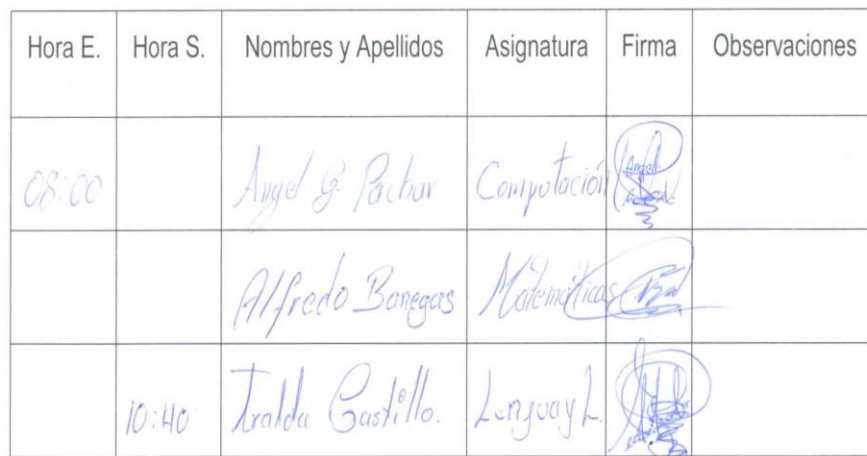 Hora E. Hora S. Nombres y Apellidos Asignatura Firma Observaciones
08:00 Angel G. Computación Angel
Alfredo Banegas Matemáticas
10:40 Castillo. Lengua y L.